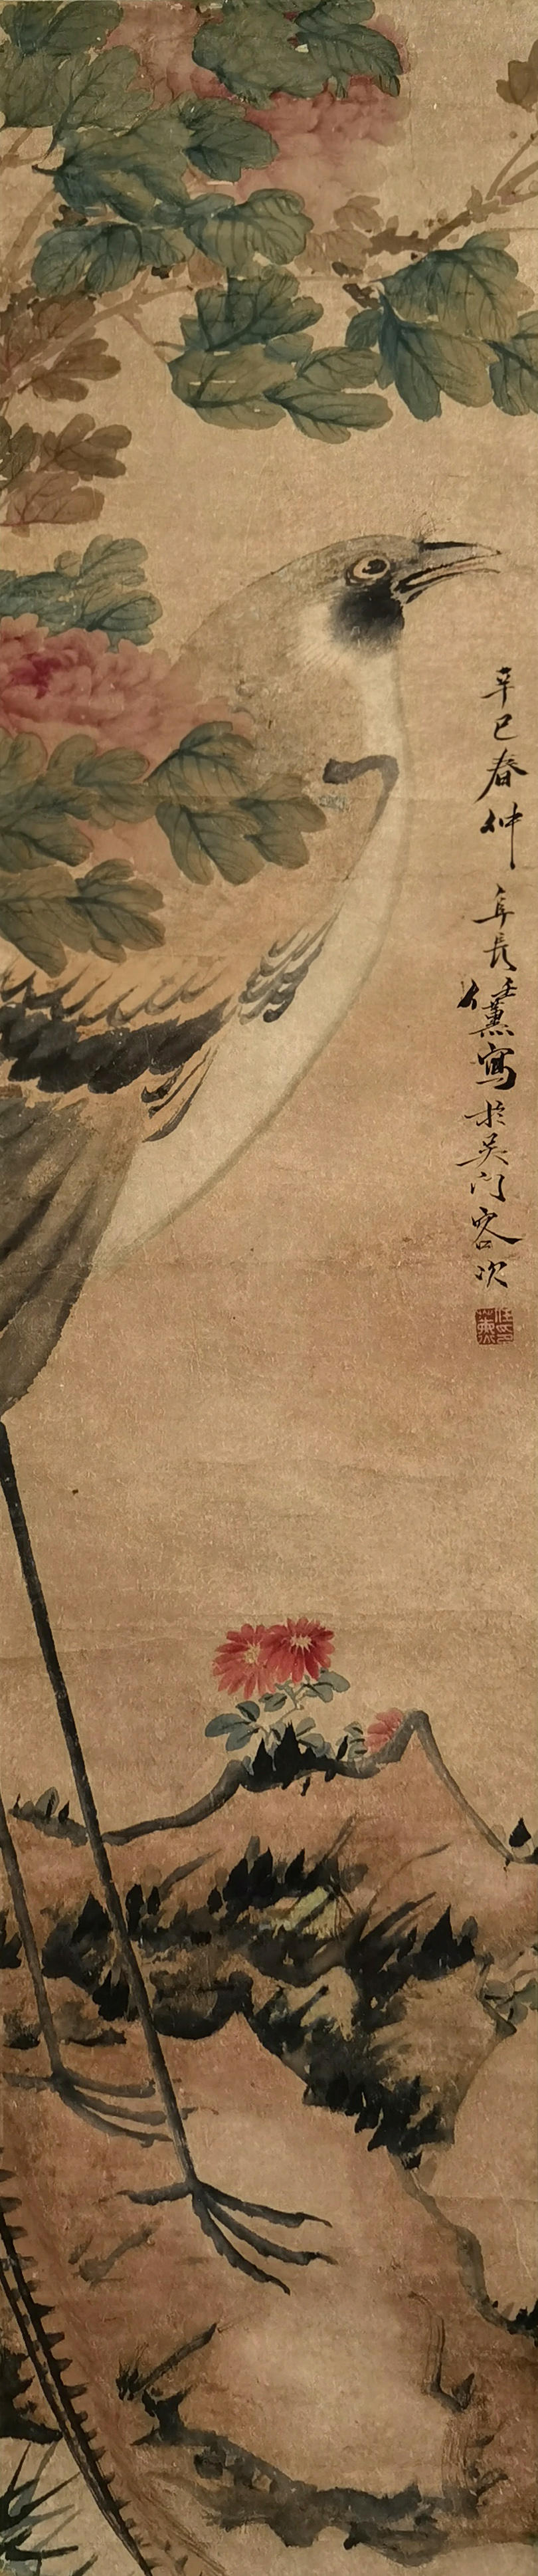 辛巳春仲阜長任薰寫於吳門客次